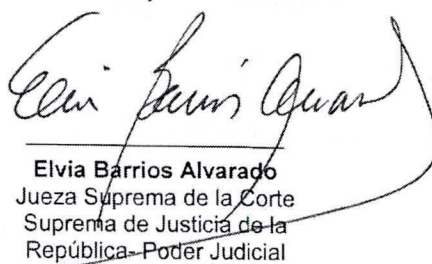 Elvia Barrios Alvarado
Elvia Barrios Alvarado
Jueza Suprema de la Corte
Suprema de Justicia de la
República- Poder Judicial